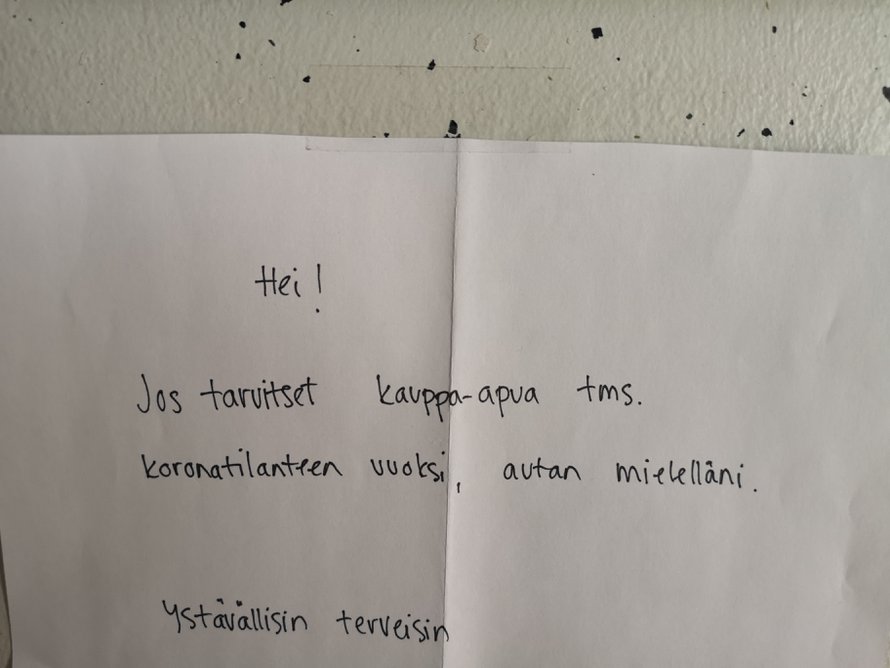 Hei!
Jos tarvitset kauppa-apua tms.
koronatilanteen vuoksi, autan mielelläni.
Ystävällisin terveisin